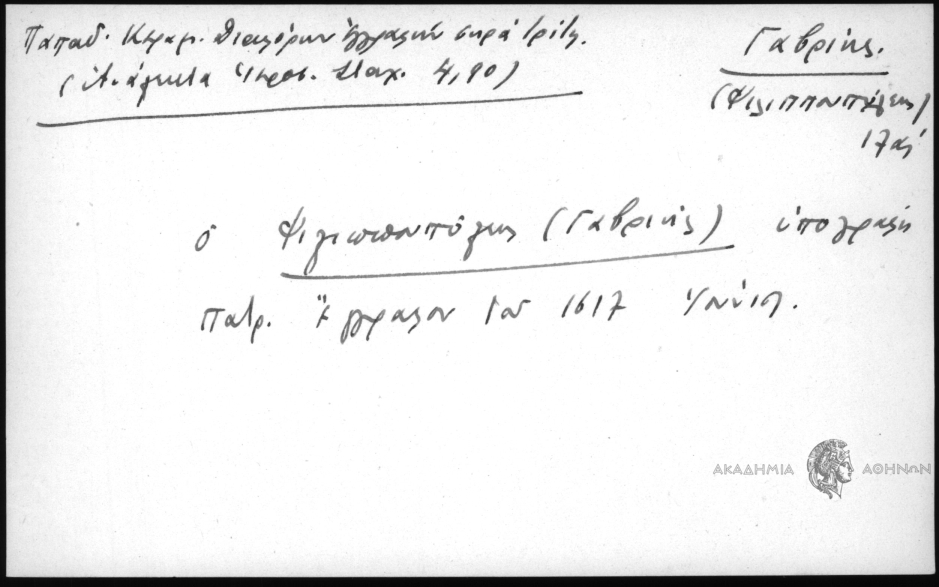 Παπαδ. Κεραμ. Διαφόρων ἐγγράφων σειρά τρίτη.
(Ἀνάλεκτα Ἱεροσ. Σταχ. 4,90)
Γαβριήλ.
(Φιλιππουπόλεως)
17ος
ὁ Φιλιππουπόλεως (Γαβριήλ) ὑπογράφει
πατρ. ἔγγραφον τοῦ 1617 Ἰουνίου.
ΑΚΑΔΗΜΙΑ ΑΘΗΝΩΝ